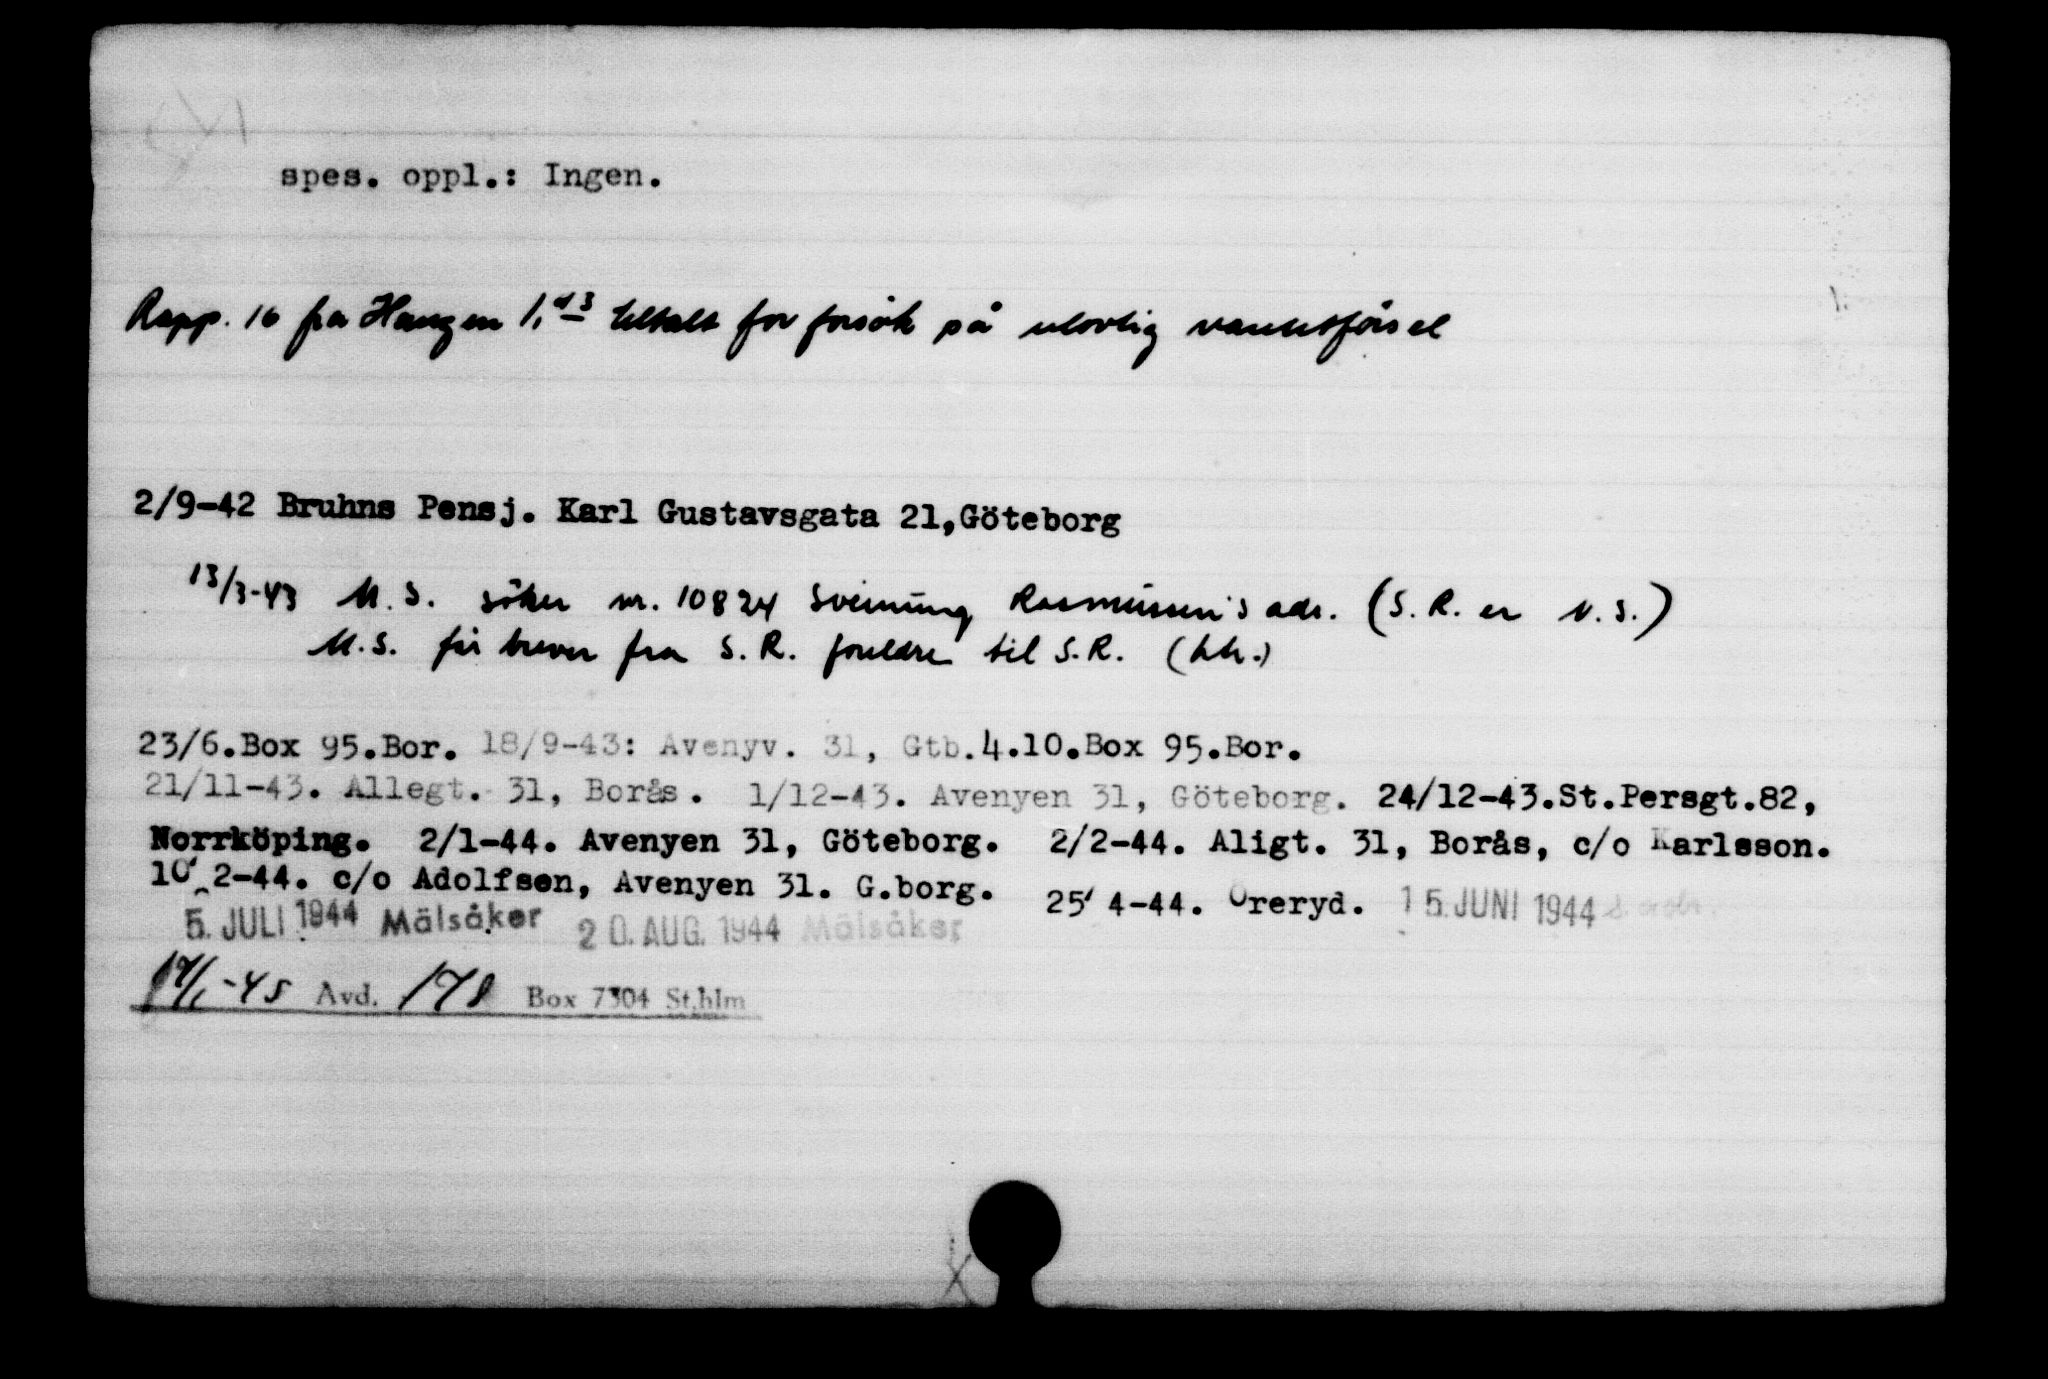 spes. oppl.: Ingen.
Rapp. 16 fra Haugen tiltalt for forsök på ulovlig vareutförsel
2/9-42 Bruhns Pensj. Karl Gustavsgata 21,Göteborg
13/3-43 M.S. söker nr. 10824 Sveinung Rasmussen's adr. (S.R. er N.S.)
M.S. får brever fra S.R. foreldre til S.R.
23/6.Box 95.Bor. 18/9-43: Avenyv. 31, Gtb.4.10.Box 95.Bor.
21/11-43. Allegt. 31, Borås. 1/12-43. Avenyen 31, Göteborg. 24/12-43.St.Persgt.82,
Norrköping. 2/1-44. Avenyen 31, Göteborg. 2/2-44. Aligt. 31, Borås, c/o Karlsson.
10/2-44. c/o Adolfsen, Avenyen 31. G.borg. 25/4-44. Öreryd. 15. JUNI 1944 s. adr.
5. JULI 1944 Mälsåker 20. AUG. 1944 Mälsåker
17/1-45 Avd. 178 Box 7304 St.hlm